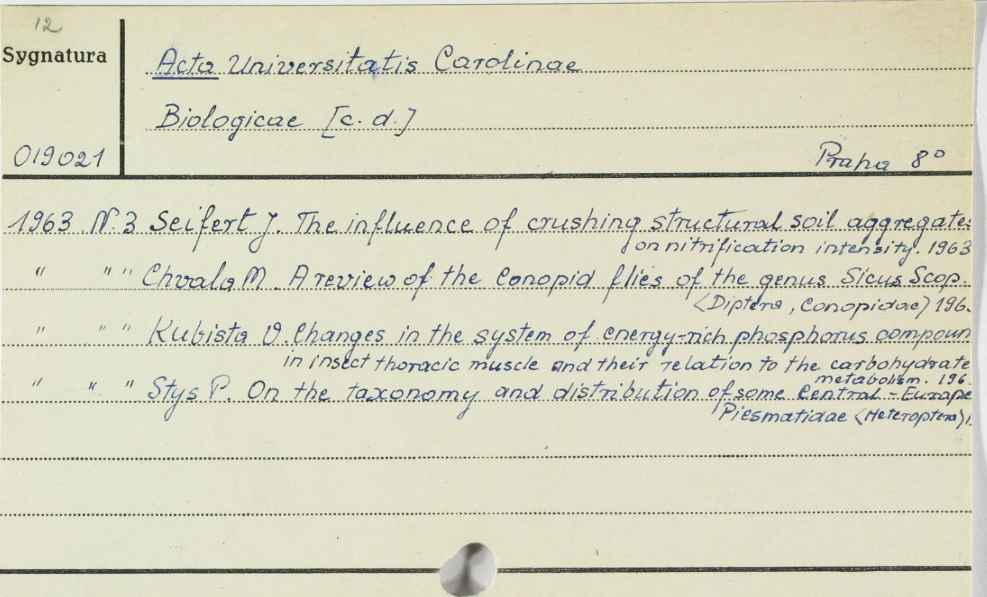 12
Sygnatura
Acta Universitatis Carolinae
Biologicae [c. d.]
019021
Praha 8°
1963 N. 3 Seifert J. The influence of crushing structural soil aggregates
on nitrification intensity. 1963
" " " Chvala M. A review of the Conopid flies of the genus Sicus Scop.
(Diptera, Conopidae) 196
" " " Kubista V. Changes in the system of energy-rich phosphorus compoun
in insect thoracic muscle and their relation to the carbohydrate
metabolism. 196
" " " Stys P. On the taxonomy and distribution of some Central-Europe
Piesmatidae (Heteroptera)